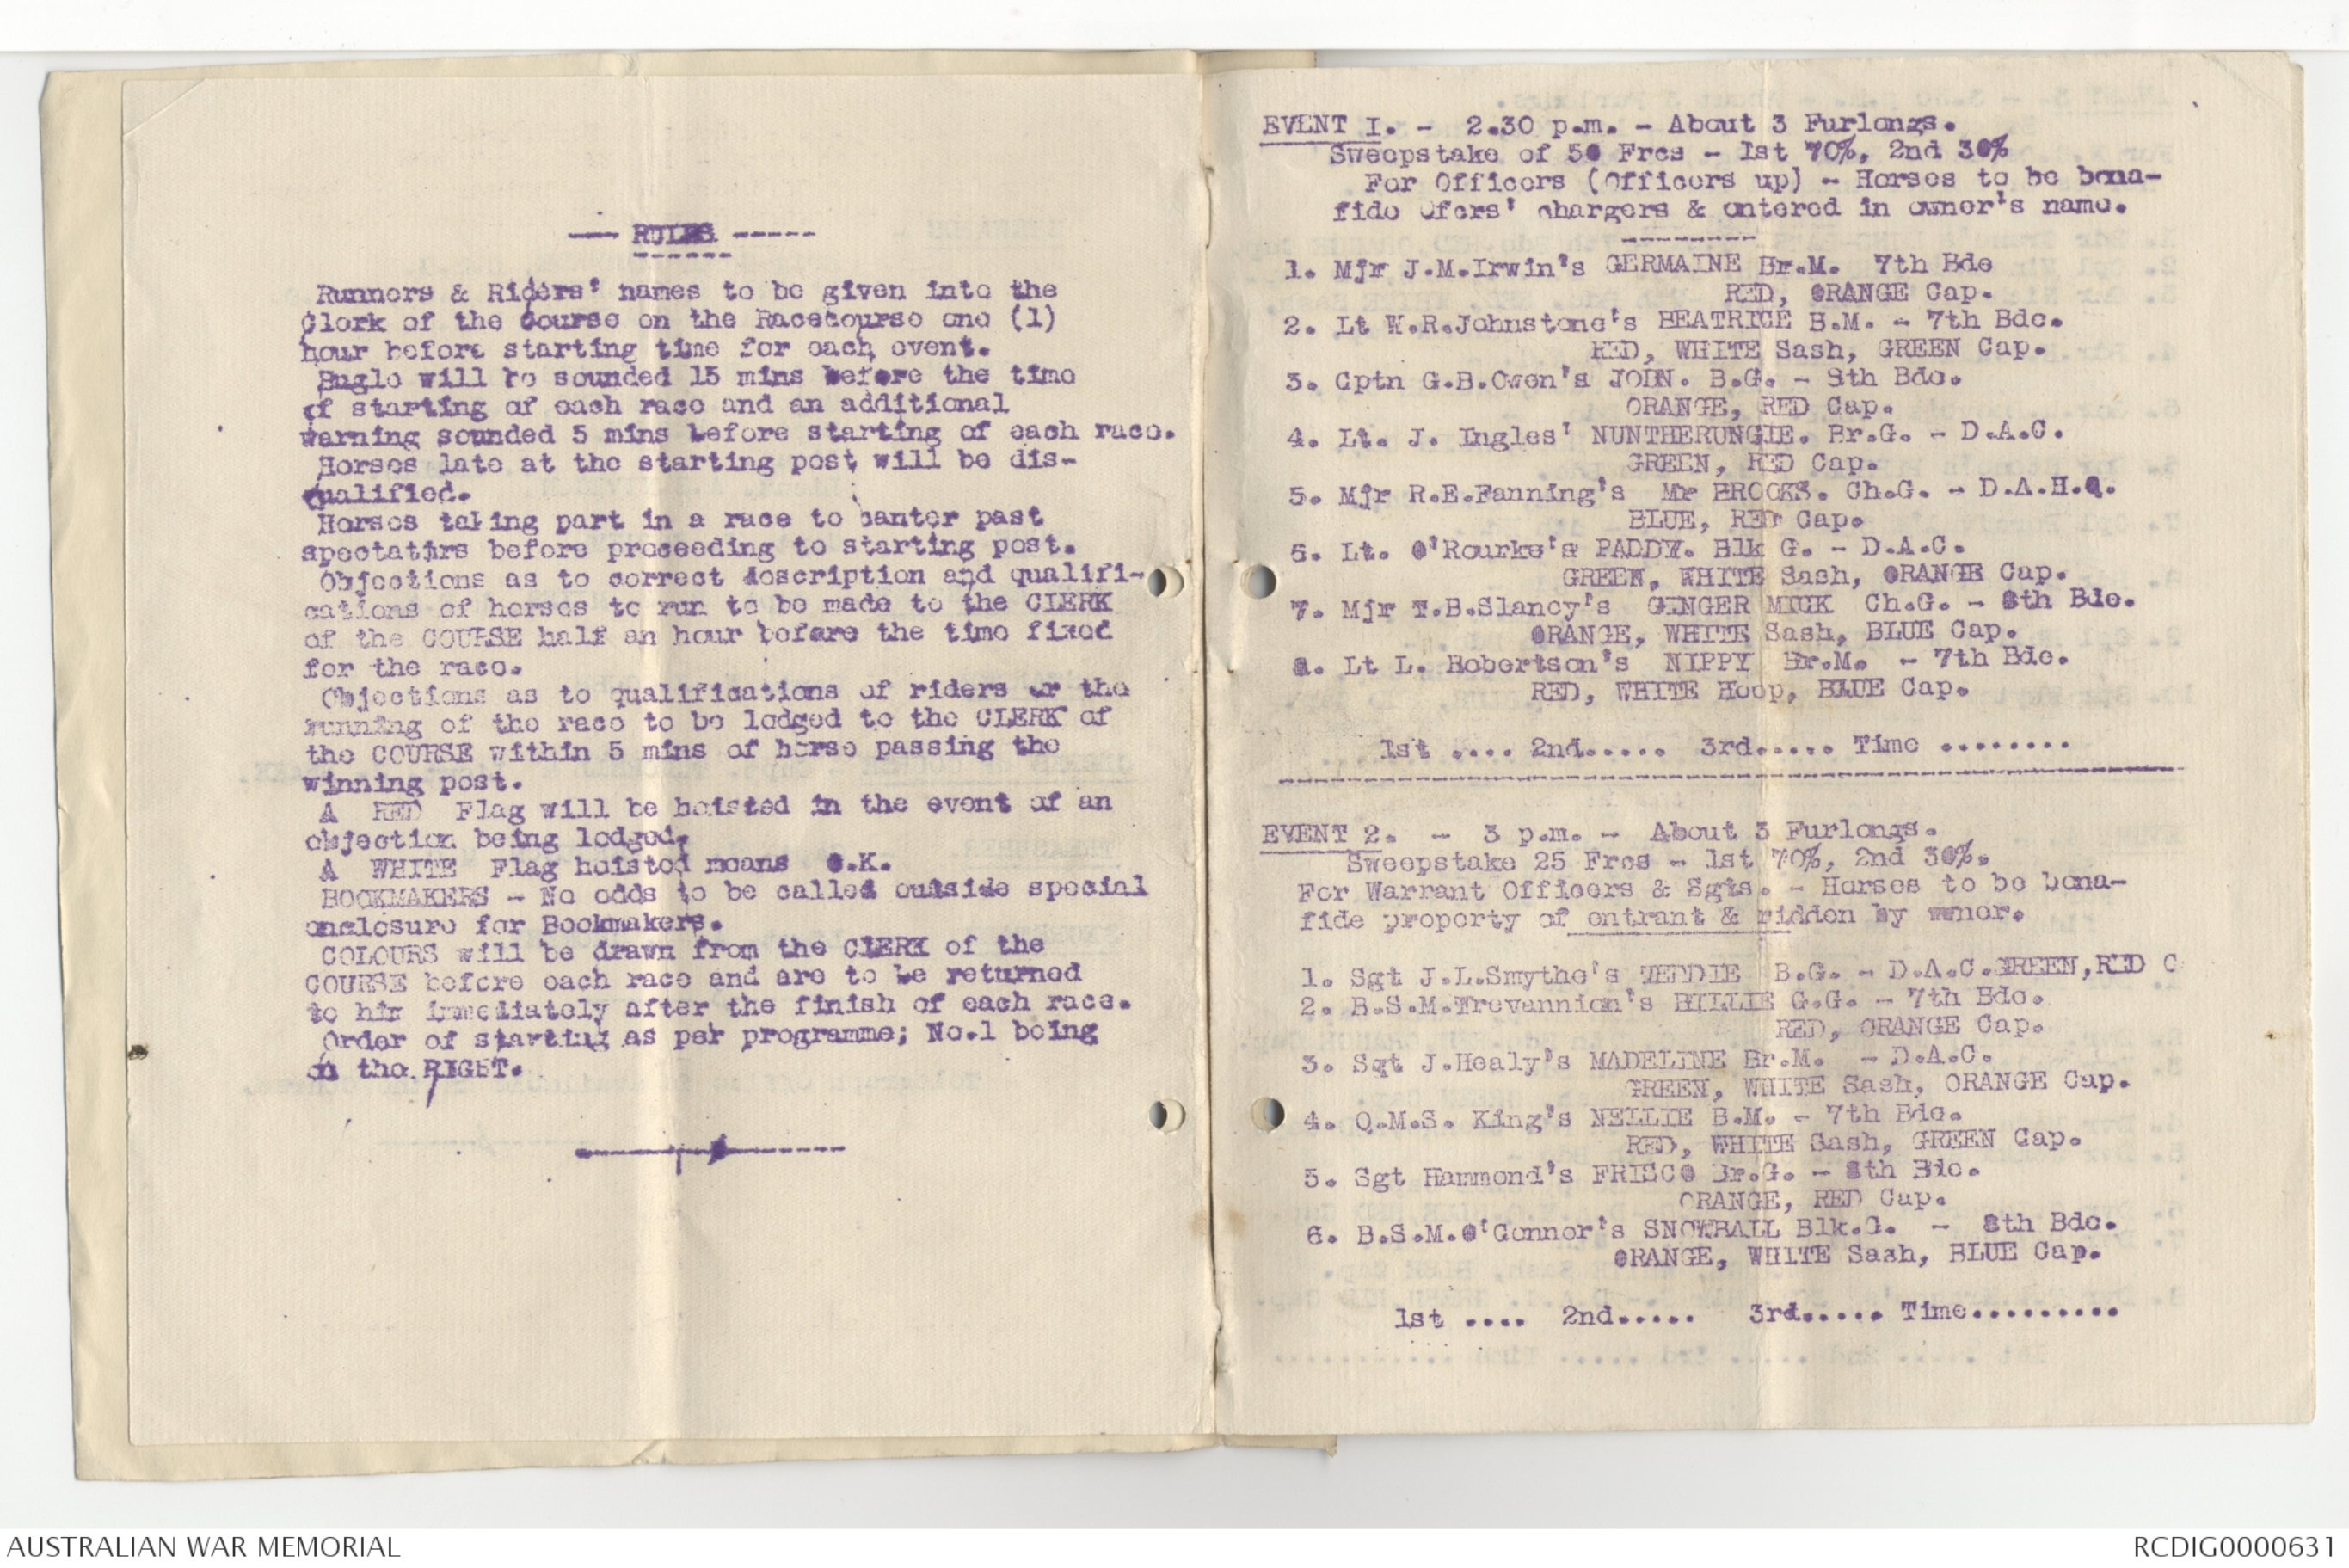 --- RULES -----
Runners & Riders' names to be given into the
Clerk of the Course on the Racecourse one (1)
hour before starting time for each event.
Bugle will be sounded 15 mins before the time
of starting of each race and an additional
warning sounded 5 mins before starting of each race.
Horses late at the starting post will be dis-
qualified.
Horses taking part in a race to canter past
spectators before proceeding to starting post.
Objections as to correct description and qualifi-
cations of horses to run to be made to the CLERK
of the COURSE half an hour before the time fixed
for the race.
Objections as to qualifications of riders or the
running of the race to be lodged to the CLERK of
the COURSE within 5 mins of horse passing the
winning post.
A RED Flag will be hoisted in the event of an
objection being lodged.
A WHITE Flag hoisted means O.K.
BOOKMAKERS - No odds to be called outside special
enclosure for Bookmakers.
COLOURS will be drawn from the CLERK of the
COURSE before each race and are to be returned
to him immediately after the finish of each race.
Order of starting as per programme; No.1 being
on the RIGHT.
EVENT I. - 2.30 p.m. - About 3 Furlongs.
Sweepstake of 50 Frcs - 1st 70%, 2nd 30%
For Officers (Officers up) - Horses to be bona-
fide Ofcrs' chargers & entered in owner's name.
---------
1. Mjr J.M.Irwin's GERMAINE Br.M. 7th Bde
RED, ORANGE Cap.
2. Lt W.R.Johnstone's BEATRICE B.M. - 7th Bde.
RED, WHITE Sash, GREEN Cap.
3. Cptn G.B.Owen's JOHN. B.G. - 8th Bde.
ORANGE, RED Cap.
4. Lt. J. Ingles' NUNTHERUNGIE. Br.G. - D.A.C.
GREEN, RED Cap.
5. Mjr R.E.Fanning's Mr BROOKS. Ch.G. - D.A.H.Q.
BLUE, RED Cap.
6. Lt. O'Rourke's PADDY. Blk G. - D.A.C.
GREEN, WHITE Sash, ORANGE Cap.
7. Mjr T.B.Slaney's GINGER MICK Ch.G. - 8th Bde.
ORANGE, WHITE Sash, BLUE Cap.
8. Lt L. Robertson's NIPPY Br.M. - 7th Bde.
RED, WHITE Hoop, BLUE Cap.
1st .... 2nd..... 3rd..... Time ........
EVENT 2. - 3 p.m. - About 3 Furlongs.
Sweepstake 25 Frcs - 1st 70%, 2nd 30%.
For Warrant Officers & Sgts. - Horses to be bona-
fide property of entrant & ridden by owner.
1. Sgt J.L.Smythe's TEDDIE B.G. - D.A.C.GREEN,RED C
2. B.S.M.Trevannion's BILLIE G.G. - 7th Bde.
RED, ORANGE Cap.
3. Sgt J.Healy's MADELINE Br.M. - D.A.C.
GREEN, WHITE Sash, ORANGE Cap.
4. Q.M.S. King's NELLIE B.M. - 7th Bde.
RED, WHITE Sash, GREEN Cap.
5. Sgt Hammond's FRISCO Br.G. - 8th Bde.
ORANGE, RED Cap.
6. B.S.M.O'Connor's SNOWBALL Blk.G. - 8th Bde.
ORANGE, WHITE Sash, BLUE Cap.
1st .... 2nd..... 3rd..... Time.........
AUSTRALIAN WAR MEMORIAL
RCDIG0000631